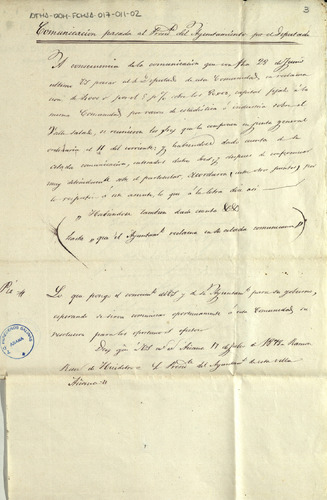 ATHA-DOH-FCHSA-017-011-02
3
Comunicacion pasada al Presidte. del Ayuntamiento por el Diputado
A consecuencia de la comunicacion que con fha 28 de Junio
ultimo pasó al Diputado de esta Comunidad, en reclama
cion de por el 5 p% sobre los impuesto fijado á la
misma Comunidad por razon de estadistica é industria sobre el
Valle Salado, se reunieron los que la componen en junta general
ordinaria el 11 del corriente, y habiendose dado cuenta de la
citada comunicacion, enterados todos de ella, y despues de conformar
muy detenidamente sobre el particular, Acordaron, entre otros puntos, por
lo respectivo á este asunto, lo que á la letra dice asi
"Habiendose tambien dado cuenta &&
hasta "que el Ayuntamto. reclama en su citada comunicacion"
Pie #
Lo que pongo el conocimto. de V. y de su Ayuntamto. para su gobierno,
esperando se sirva comunicar oportunamente á esta Comunidad su
resolucion para los oportunos efectos
Dios gue á V. ms. as. Añana 12 de Julio de 1878. Ramon
de Sr. Presidte. del Ayuntamto. de esta villa
Añana
AÑANA